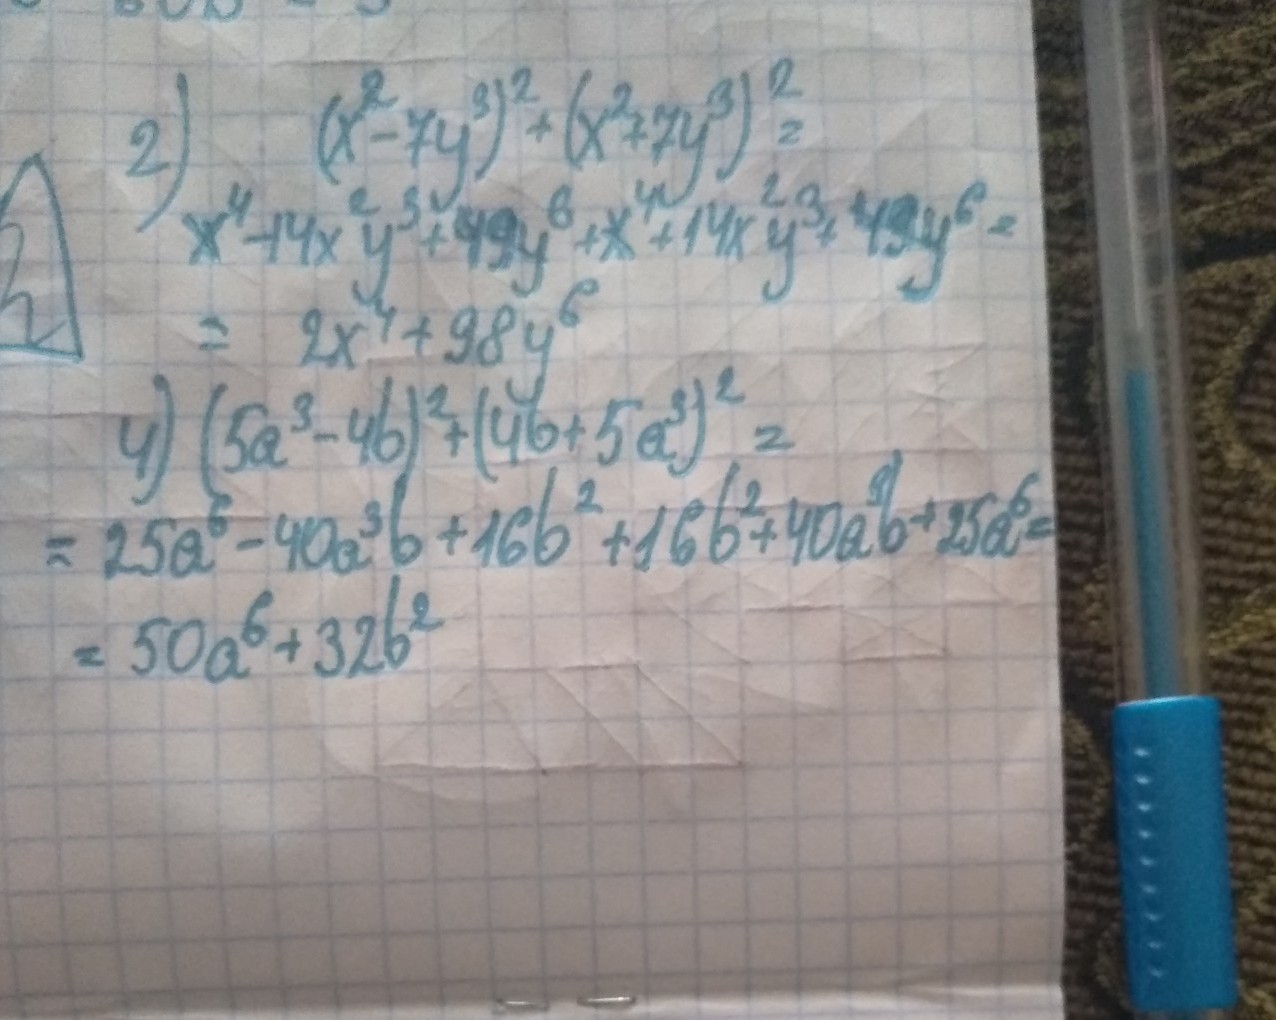 2) (x²-7y³)²+(x²+7y³)²=
x⁴-14x²y³+49y⁶+x⁴+14x²y³+49y⁶=
= 2x⁴+98y⁶
4) (5a³-4b)²+(4b+5a³)²=
=25a⁶-40a³b+16b²+16b²+40a³b+25a⁶=
=50a⁶+32b²